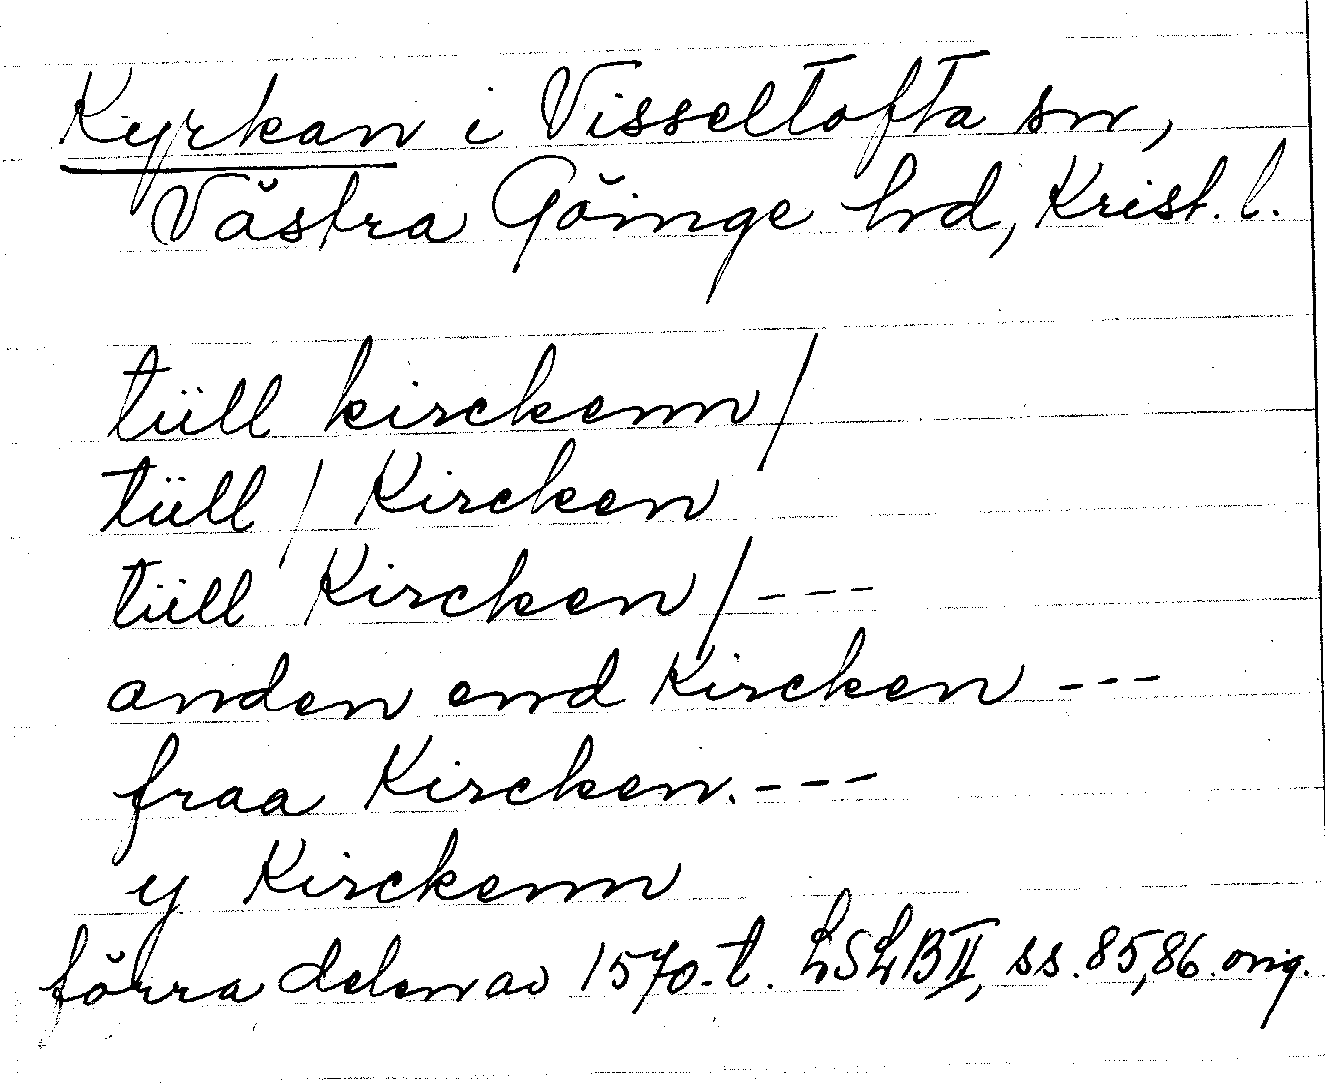 Kyrkan i Visseltofta sn,
Västra Göinge hd, Krist. l.
tüll kirckenn/
tüll / Kircken
tüll Kircken/---
anden end Kircken ---
fraa Kircken.---
y Kirckenn
förra delen av 1570-t. LSLB II, ss. 85, 86. orig.